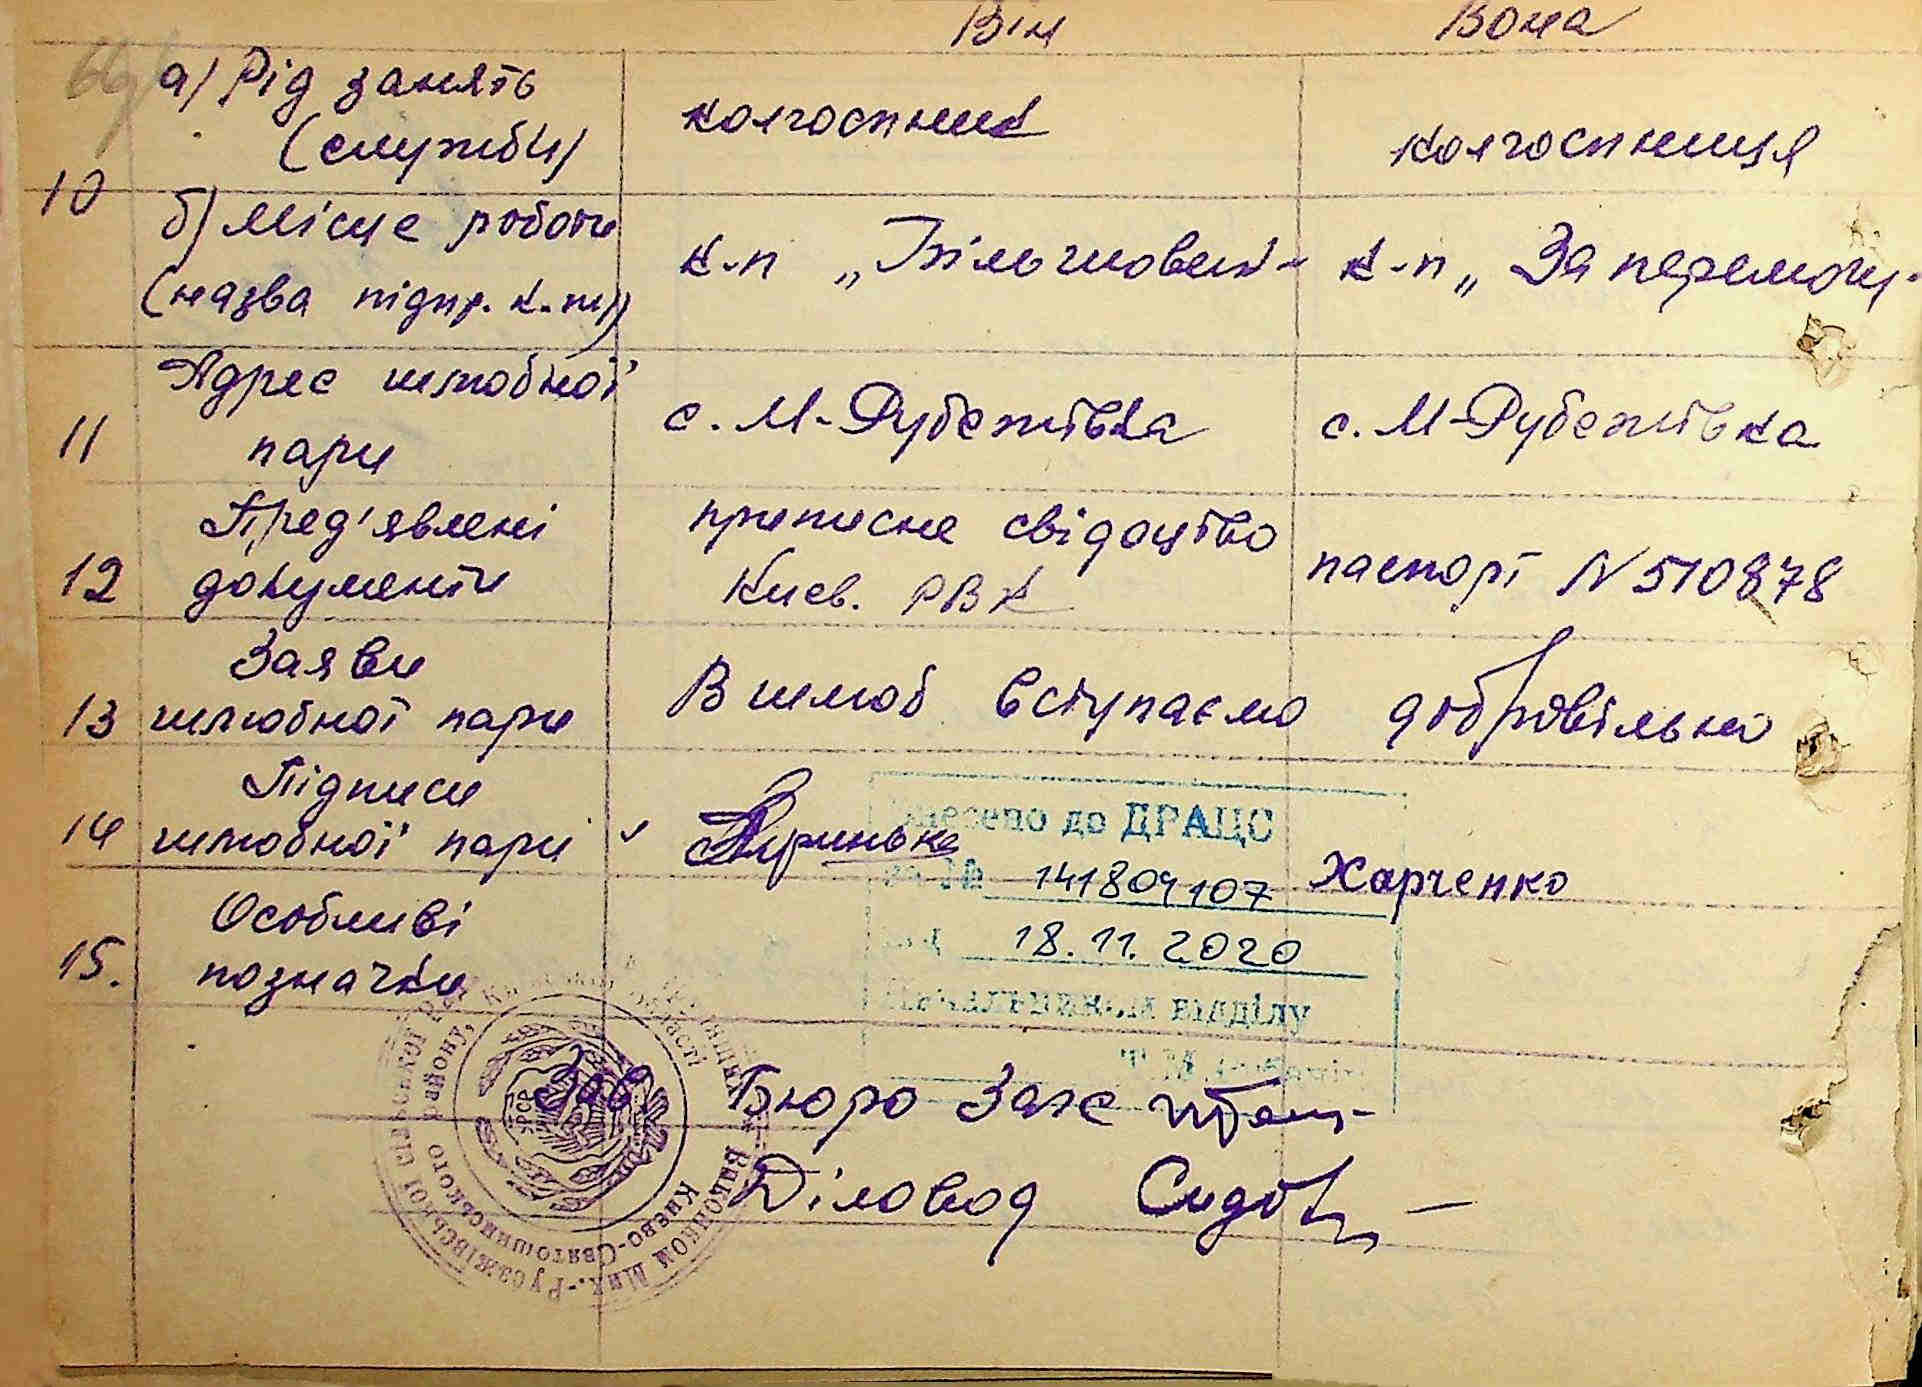 Він Вона
а) Рід занять
(служби)
колгоспник
колгоспниця
10
б) Місце роботи
(назва підпр. к.-пу)
к-п „Більшовик"
к-п „За перемогу"
11
Адрес шлюбної
пари
с. М-Рубежівка
с. М-Рубежівка
12
Пред'явлені
документи
приписне свідоцтво
Києв. РВК
паспорт N 510878
13
Заяви
шлюбної пари
В шлюб вступаємо добровільно
14
Підписи
шлюбної парі
Харченко
15.
Особливі
позначки
Внесено до ДРАЦС
за № 141804107
від 18.11.2020
Начальником відділу
Зав Бюро Загс
Діловод
Виконком Мих.-Рубежівської сільської ради
Києво-Святошинського району, Київської області
УРСР